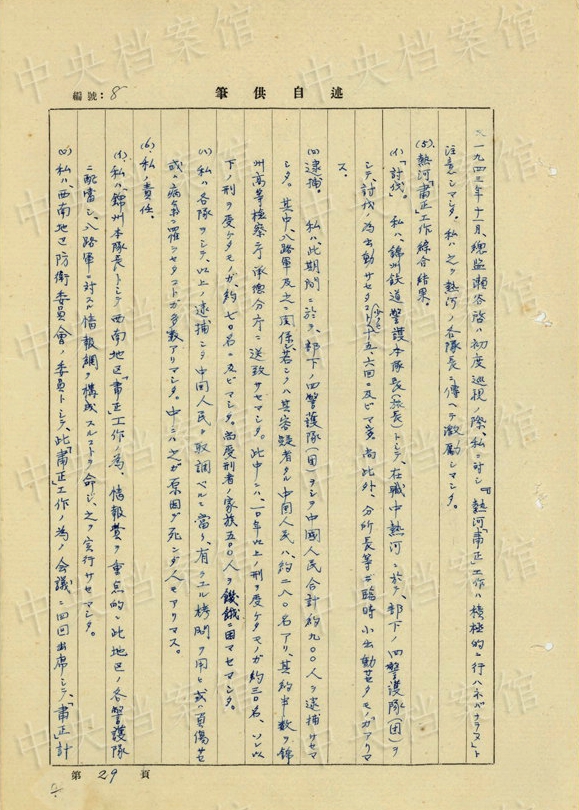 編號：8
述自供筆
又一九四三年十一月、總監瀬谷啓ハ初度巡視ノ際、私ニ対シ『熱河「粛正」工作ハ積極的ニ行ハネバナラヌ』ト
注意シマシタ。私ハ之ヲ熱河ノ各隊長ニ傳ヘテ激勵シマシタ。
(5).熱河「粛正」工作綜合結果。
(イ)「討伐」。私ハ、錦州鉄道警護本隊長(旅長)トシテ、在職中熱河ニ於テ、部下ノ四警護隊(団)ヲ
シテ、討伐ノ為出動サセタコト少クモ十五、六回ニ及ビマス、尚此外、分所長等ガ臨時小出動セタモノガアリマ
ス。
(ロ)逮捕。私ハ、此期間ニ於テ、部下ノ四警護隊(団)ヲシテ中國人民合計約九〇〇人ヲ逮捕サセマ
シタ。其中、八路軍及之ニ関係、若シクハ其容疑者タル中国人民ハ、約二八〇名アリ、其約半数ヲ錦
州高等檢察庁承徳分庁ニ送致サセマシタ。此中ニハ、一〇年以上ノ刑ヲ受ケタモノガ約三〇名、ソレ以
下ノ刑ヲ受ケタモノガ、約七〇名ニ及ビマシタ。尚受刑者ノ家族五〇〇人ヲ饑餓ニ困マセマシタ。
(ハ)私ハ各隊ヲシテ、以上ノ逮捕シタ中国人民ヲ取調ベルニ當リ、有ラユル拷問ヲ用ヒ或ハ負傷サセ
或ハ病気ニ罹ラセタコトガ多数アリマシタ。中ニハ之ガ原因デ死ンダ人モアリマス。
(6).私ノ責任。
(イ).私ハ、錦州本隊長トシテ西南地区「粛正」工作ノ為、情報費ヲ重点的ニ此地区ノ各警護隊
ニ配當シ、八路軍ニ対スル情報網ヲ構成スルコトヲ命ジ、之ヲ実行サセマシタ。
(ロ)私ハ、西南地区防衛委員會ノ委員トシテ、此「粛正」工作ノ為ノ会議ニ四回出席シテ、「粛正」計
第 29 頁
中央档案馆